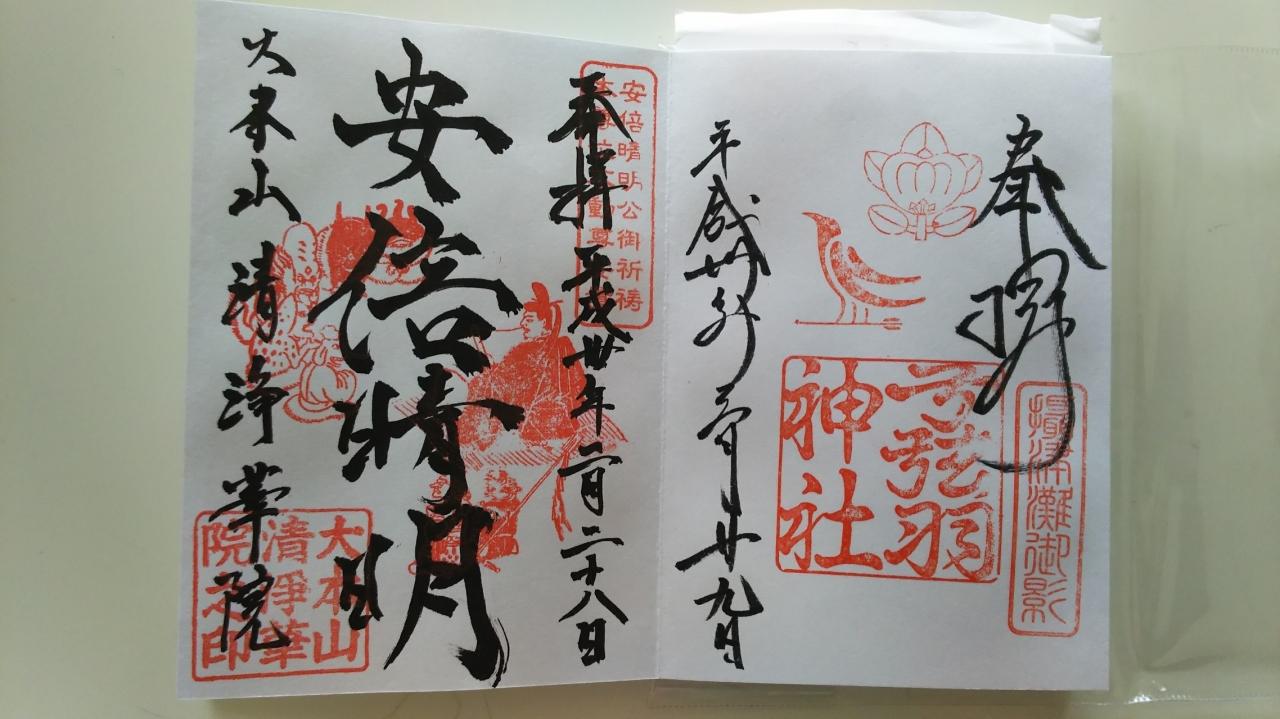 奉拝
攝津灘御影
弓弦羽
神社
平成卅年 月廿九日
安倍晴明公御祈祷
動尊
奉拝 平成卅年二月二十八日
安倍晴明
大本山 清浄華院
大本山
清浄華
院之印